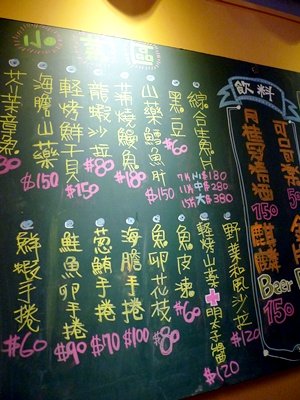 小菜區
綜合生魚片
7片小$180
11片中$280
15片大$380
黑豆
$60
山藥鱈魚肝
$150
蒲燒鰻魚
$180
龍蝦沙拉
$80
輕烤鮮干貝
$150
海膽山藥
$150
芥茉章魚
野菜和風沙拉
$120
輕烤山藥+明太子醬
$120
魚皮凍
$60
魚卵花枝
$80
海膽手捲
$100
蔥鮪手捲
$70
鮭魚卵手捲
$90
鮮蝦手捲
$60
飲料
可口可樂
月桂冠清酒
150
麒麟
Beer
150